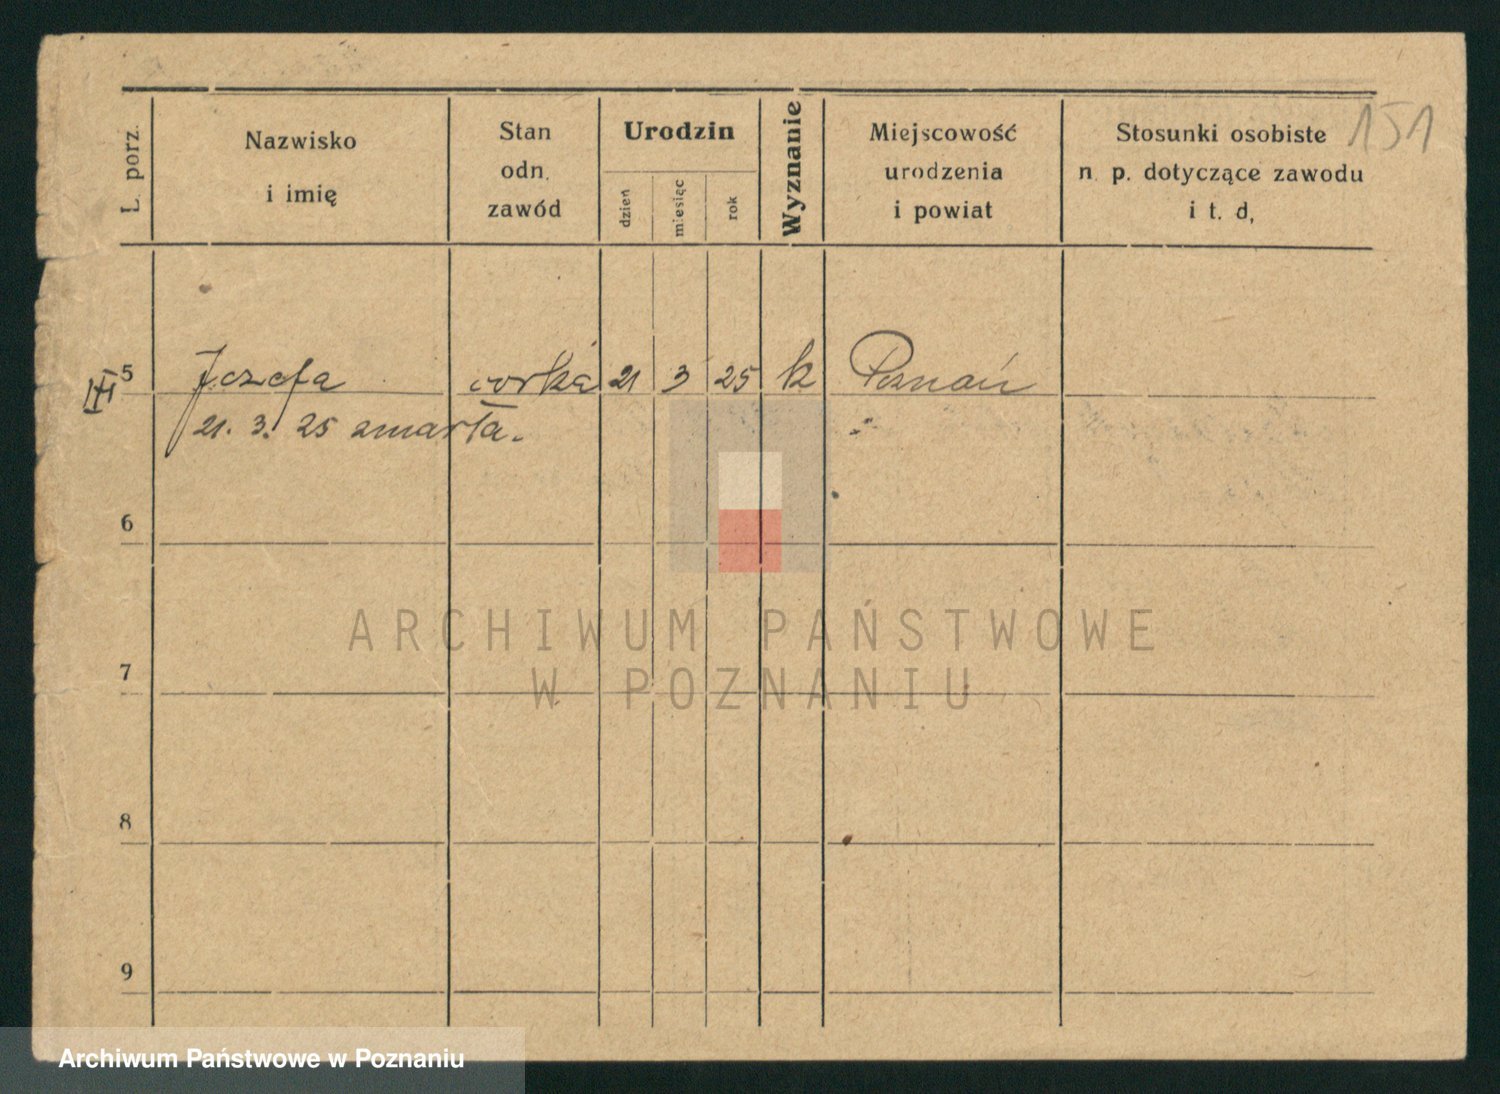 151
L. porz.
Nazwisko
i imię
Stan
odn.
zawód
Urodzin
dzień
miesięc
rok
Wyznanie
Miejscowość
urodzenia
i powiat
Stosunki osobiste
n. p. dotyczące zawodu
i t. d,
III 5 Józefa córka 21 3 25 k Poznań
21. 3. 25 zmarła. "
6
7
8
9
ARCHIWUM PAŃSTWOWE
W POZNANIU
Archiwum Państwowe w Poznaniu